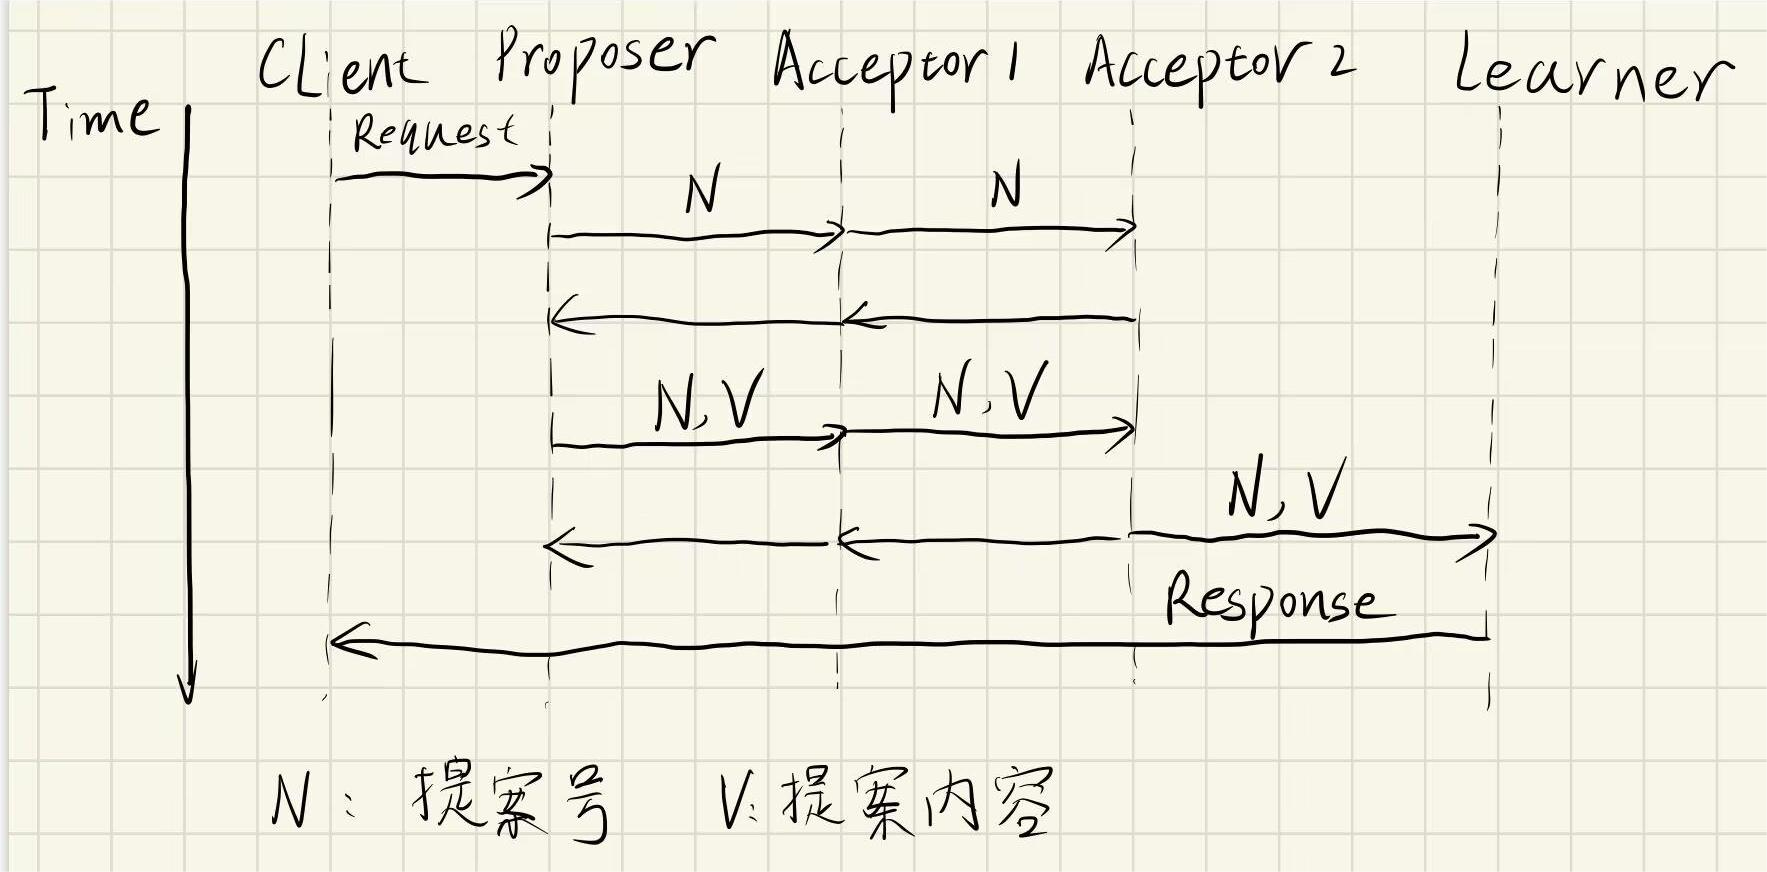 Client Proposer Acceptor 1 Acceptor 2 Learner
Time
Request
N N
N, V N, V
N, V
Response
N: 提案号 V: 提案内容